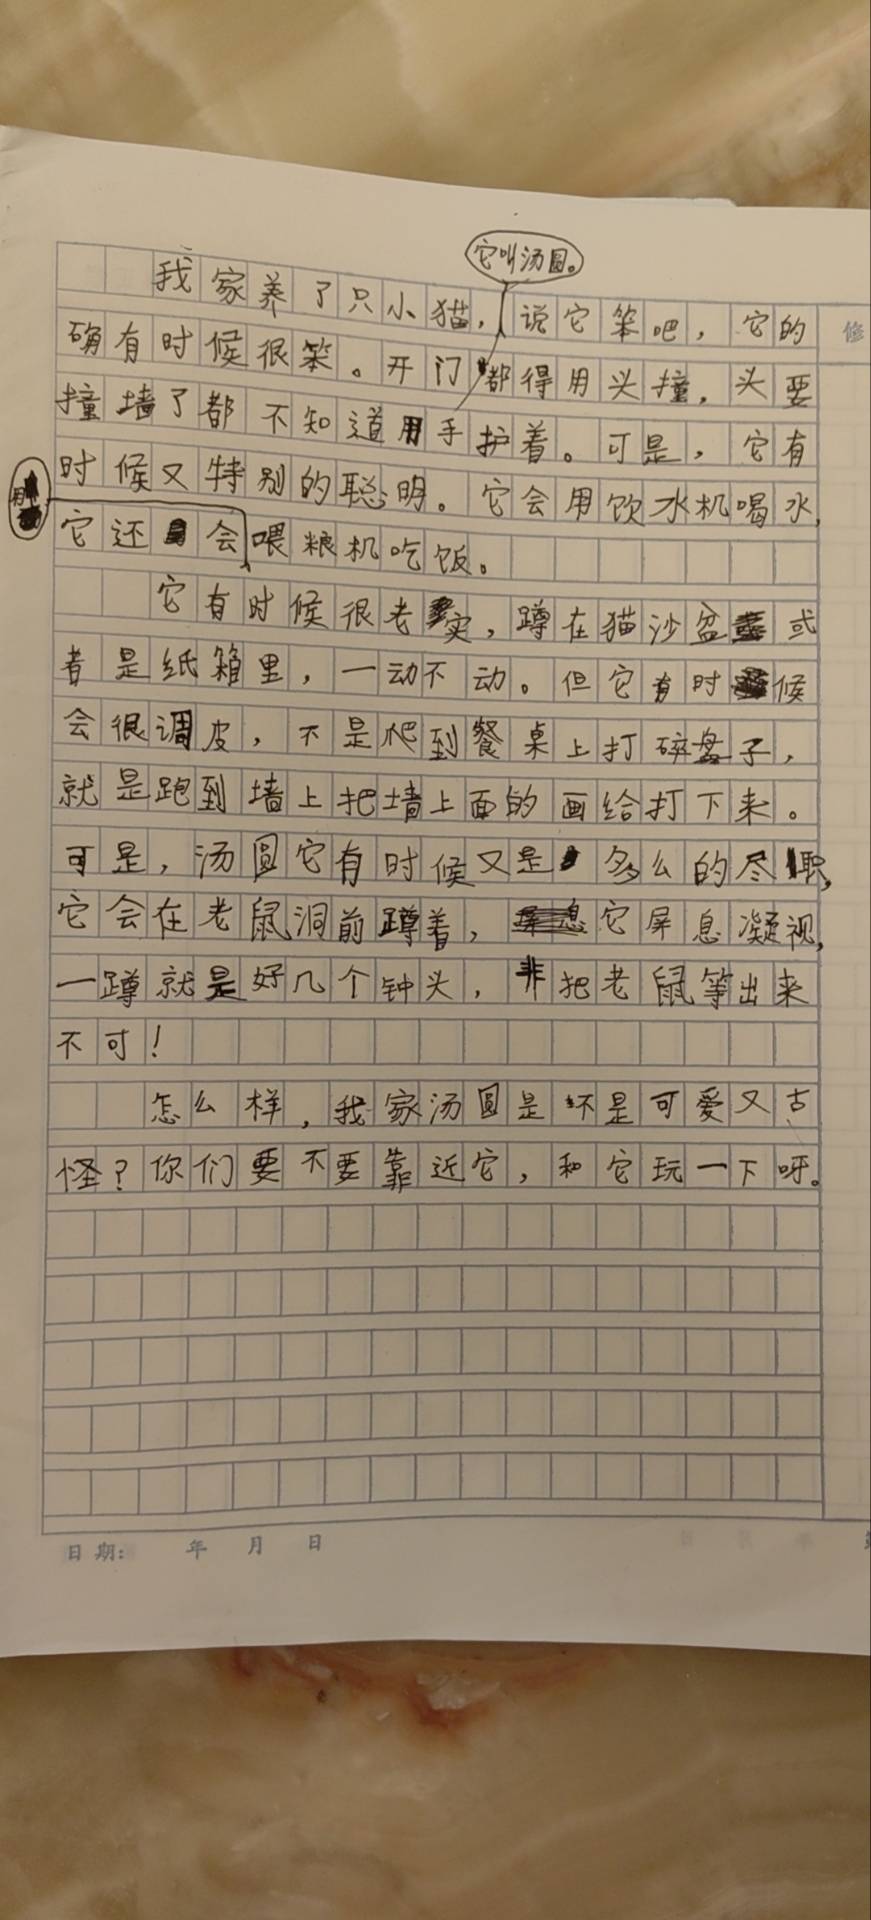 它叫汤圆。
我家养了只小猫，说它笨吧，它的
修
确有时候很笨。开门都得用头撞，头要
撞墙了都不知道用手护着。可是，它有
时候又特别的聪明。它会用饮水机喝水，
用
它还会喂粮机吃饭。
它有时候很老实，蹲在猫沙盆或
者是纸箱里，一动不动。但它有时候
会很调皮，不是爬到餐桌上打碎盘子，
就是跑到墙上把墙上面的画给打下来。
可是，汤圆它有时候又是多么的尽职，
它会在老鼠洞前蹲着，它屏息凝视，
一蹲就是好几个钟头，非把老鼠等出来
不可！
怎么样，我家汤圆是不是可爱又古
怪？你们要不要靠近它，和它玩一下呀。
日期： 年 月 日